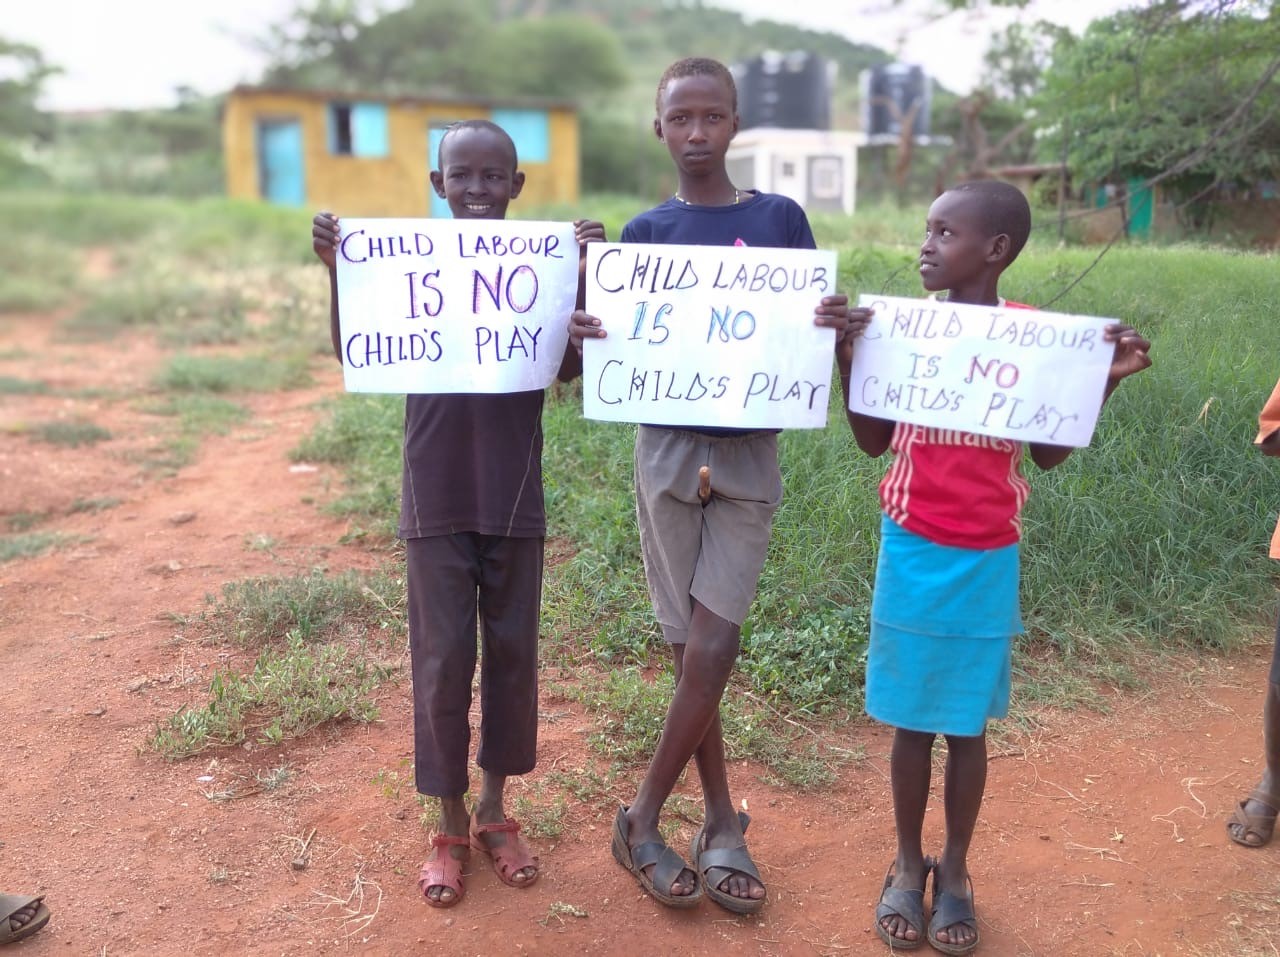 CHILD LABOUR
IS NO
CHILD'S PLAY
CHILD LABOUR
IS NO
CHILD'S PLAY
CHILD LABOUR
IS NO
CHILD'S PLAY
Emirates